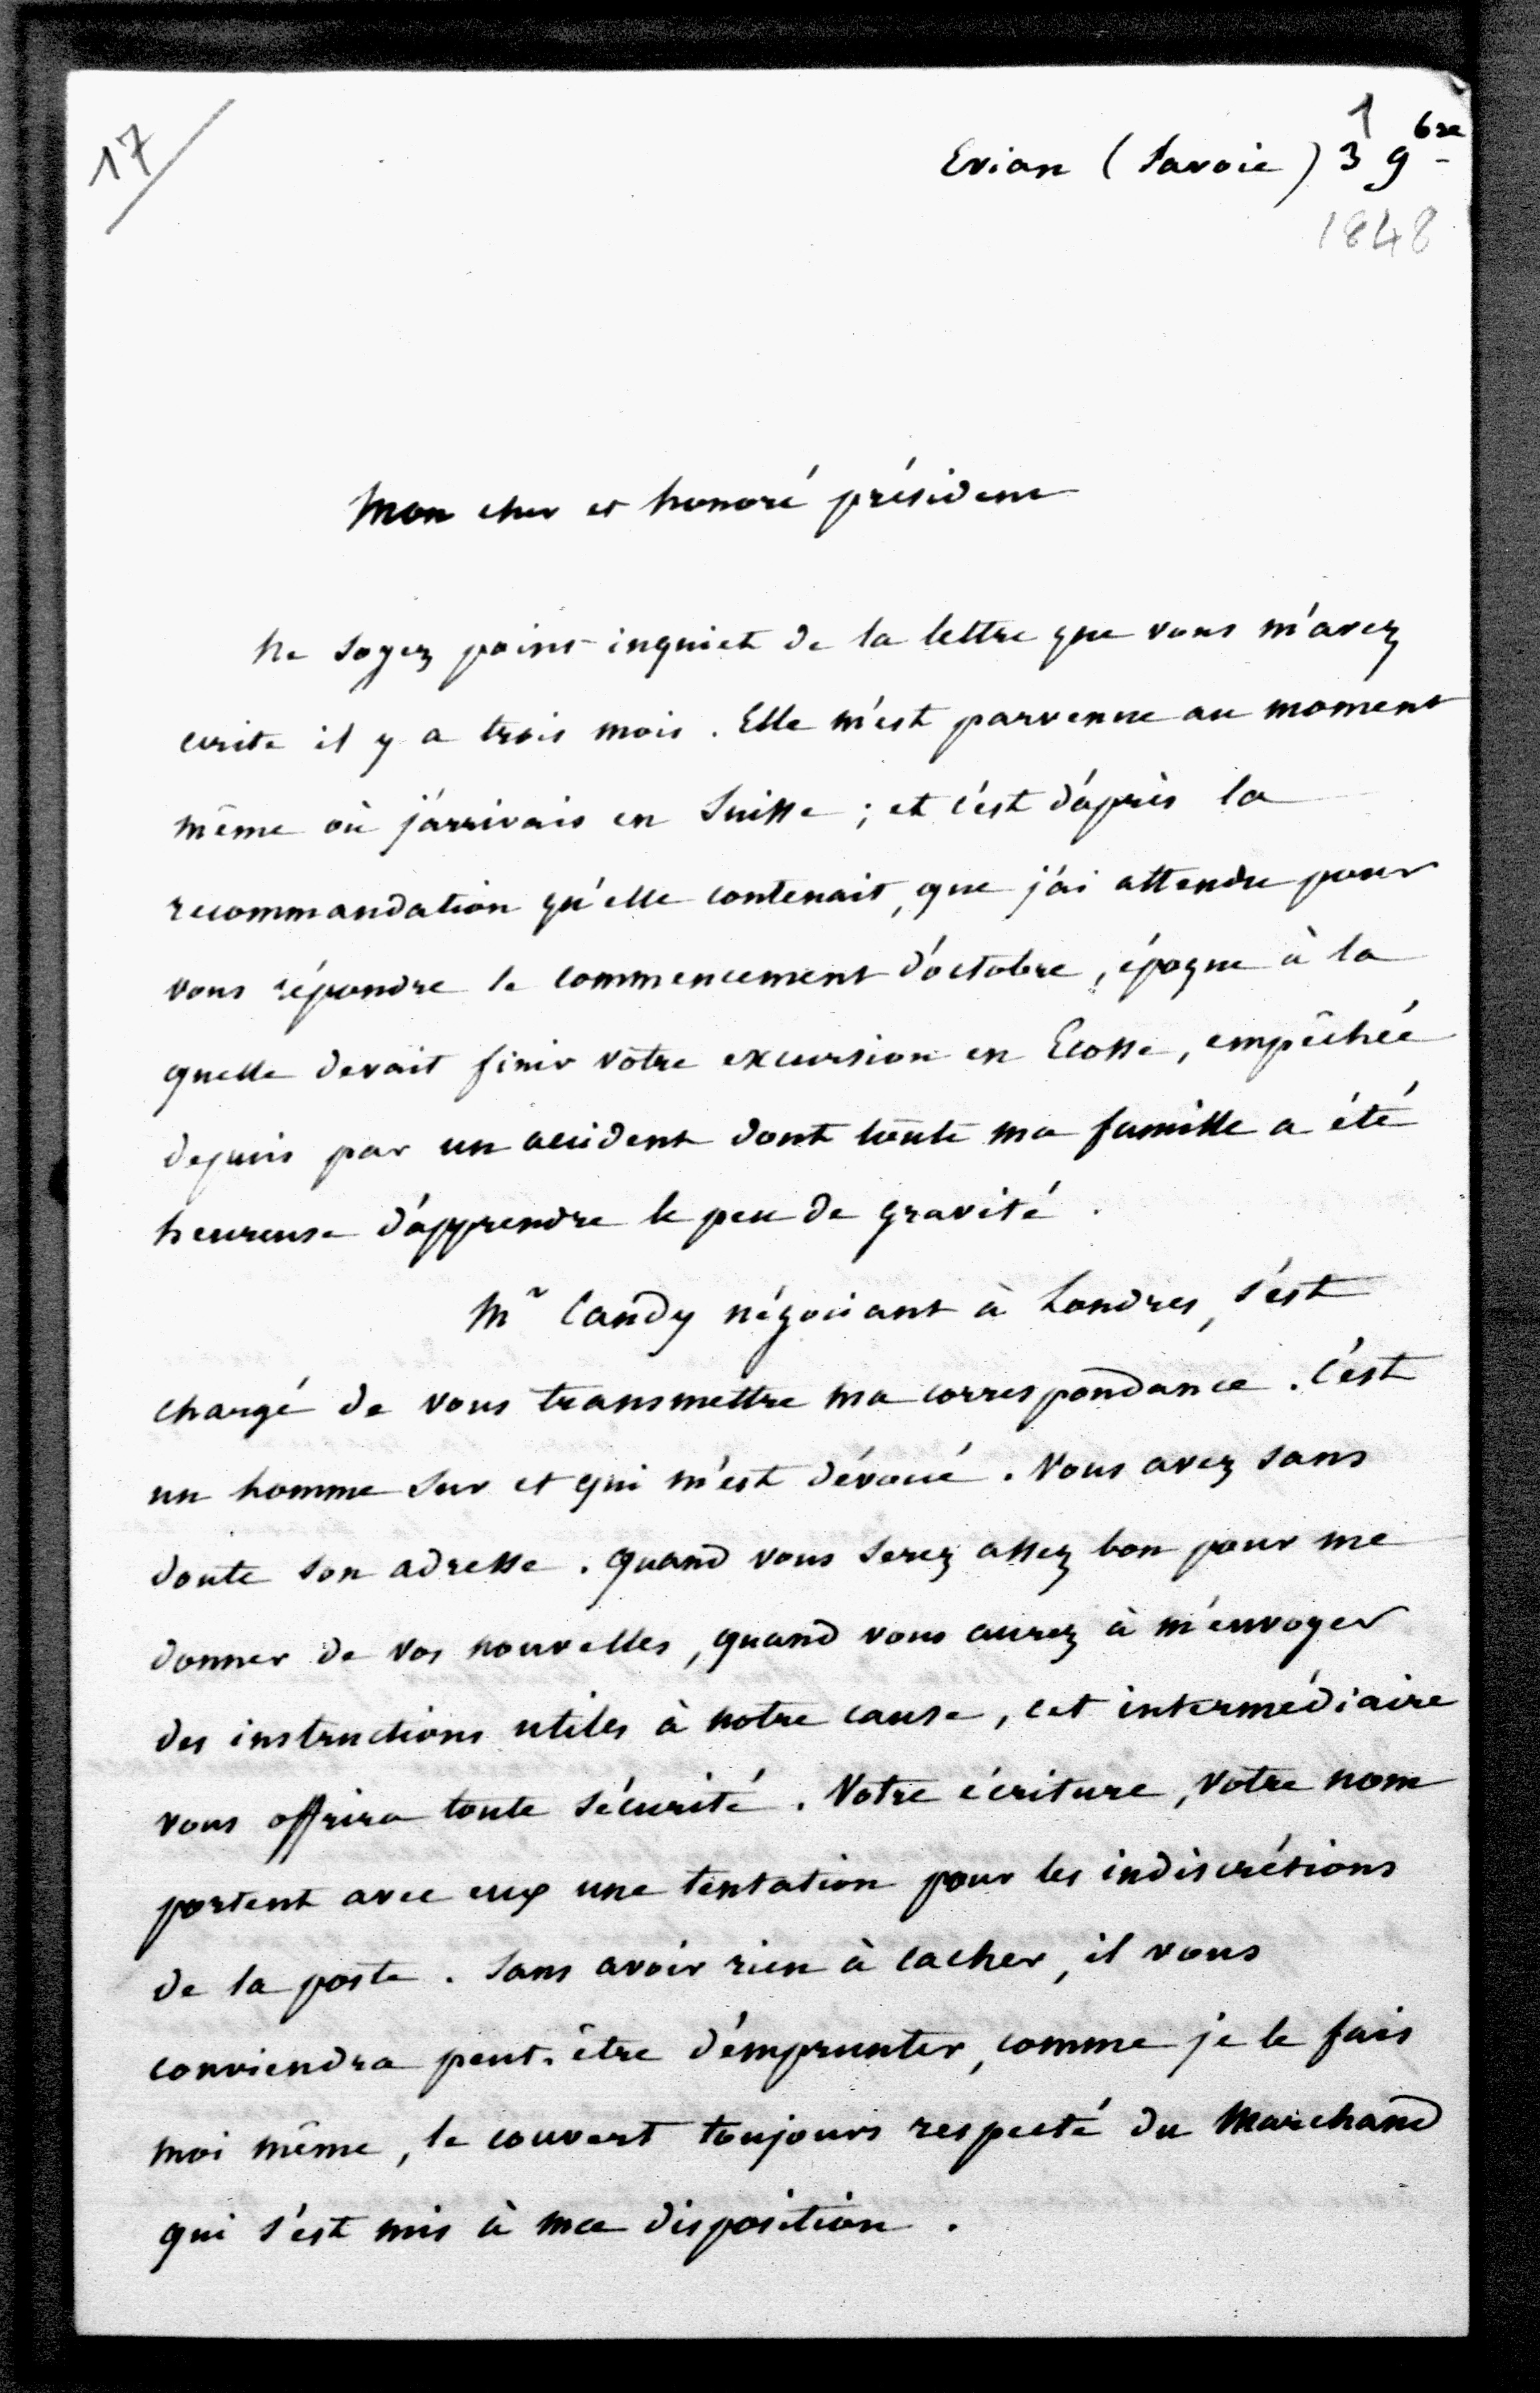 17
1
Evian (Savoie) 3 9bre
1848
Mon cher et honoré président
Ne soyez point inquiet de la lettre que vous m'avez
ecrite il y a trois mois. Elle m'est parvenue au moment
même où j'arrivais en Suisse ; et c'est d'après la
recommandation qu'elle contenait, que j'ai attendu pour
vous répondre le commencement d'octobre, époque à la
quelle devait finir votre excursion en Ecosse, empêchée
depuis par un accident dont toute ma famille a été
heureuse d'apprendre le peu de gravité.
Mr Candy négociant à Londres, s'est
chargé de vous transmettre ma correspondance. C'est
un homme sur et qui m'est dévoué. Vous avez sans
doute son adresse. Quand vous serez assez bon pour me
donner de vos nouvelles, quand vous aurez à m'envoyer
des instructions utiles à notre cause, cet intermédiaire
vous offrira toute sécurité. Votre écriture, votre nom
portent avec eux une tentation pour les indiscrétions
de la poste. Sans avoir rien à cacher, il vous
conviendra peut-être d'emprunter, comme je le fais
moi même, le couvert toujours respecté du Marchand
qui s'est mis à ma disposition.